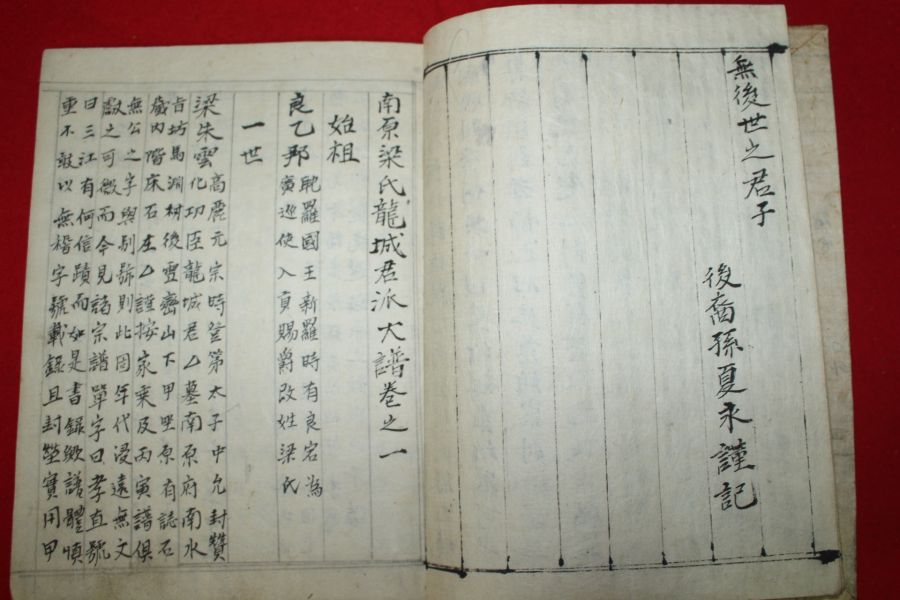 無後世之君子
後裔孫夏永謹記
南原梁氏龍城君派大譜卷之一
始祖
良乙那 耽羅國王新羅時有良宕為
廣巡使入貢賜爵改姓梁氏
一世
梁朱雲 高麗元宗時登第太子中允封贊
化功臣龍城君厶墓南原府南水
旨坊馬洞村後雲密山下甲坐原有誌石
歲內階床石左厶謹按家乘及丙寅譜俱
無公之字與別號則此因年代浸遠無文
獻之可徵而今見諸宗譜單字曰孝直號
曰三江有何信蹟而如是書錄歟譜體慎
重不敢以無稽字號載錄且封塋實用甲